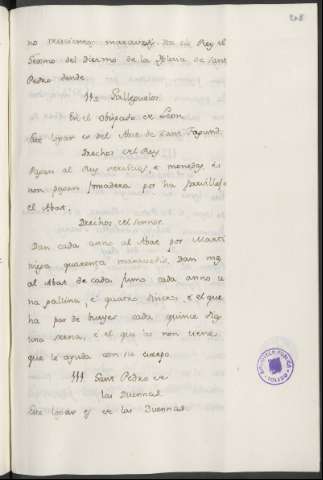 no trescientos maravedis. Da al Rey el
sesmo del diezmo de la Iglesia de sant
Pedro dende
Galleguelos
En el obispado de Leon
Este logar es del Abat de sant Fagund
Drechos del Rey
Pagan al Rey servicios, e monedas, e
non pagan fonsadera por ha
el Abat.
Drechos del sennor
Dan cada anno al Abat por Marti
niega quarenta maravedis, Dan mas
al Abat de cada fumo cada anno u
na gallina, e quatro dineros, e el que
ha par de bueyes cada quince dias
una serna, e el que los non tiene
que le ayude con su cuerpo.
Sant Pedro de
las Duennas
Este logar es de las Duennas